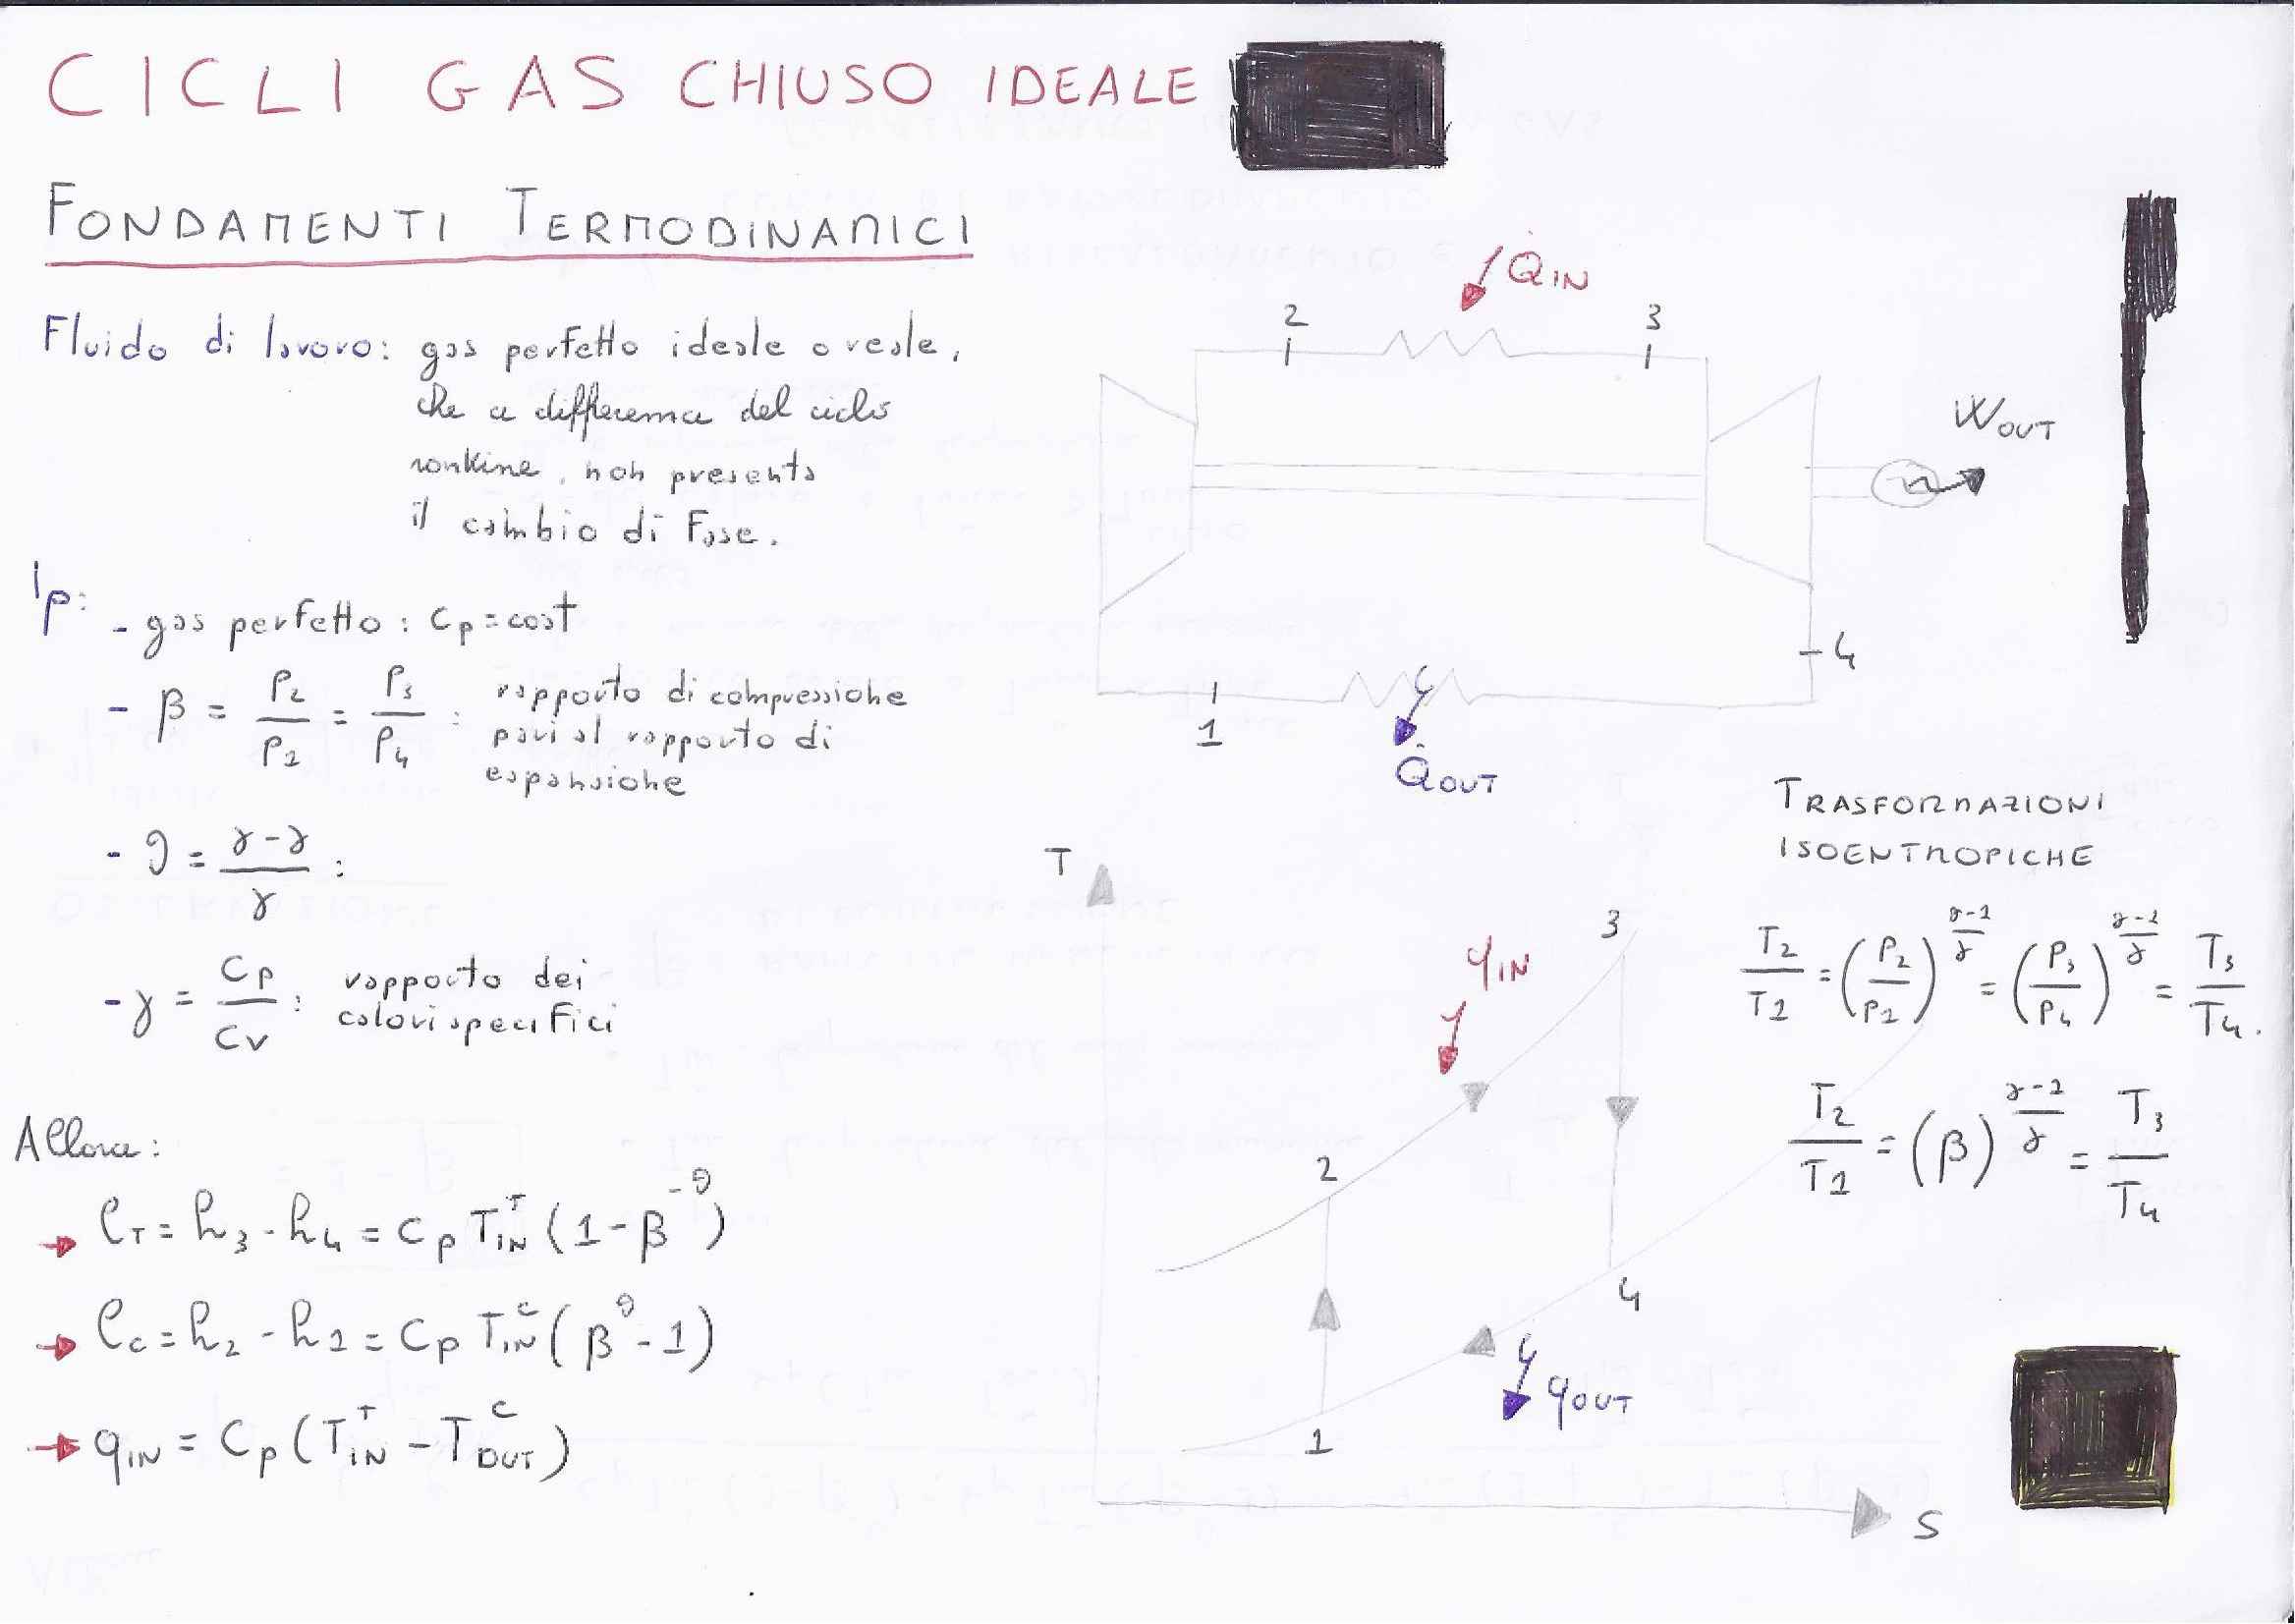 CICLI GAS CHIUSO IDEALE
FONDAMENTI TERMODINAMICI
Fluido di lavoro: gas perfetto ideale o reale,
che a differenza del ciclo
rankine, non presenta
il cambio di Fase.
Ip:
- gas perfetto: cp = cost
- β = P2/P2 = P3/P4 : rapporto di compressione
pari al rapporto di
espansione
- ϑ = γ-γ/γ :
- γ = Cp/Cv : rapporto dei
calori specifici
Allora:
→ lT = h3 - h4 = cp T_IN^T (1 - β^-ϑ)
→ lc = h2 - h1 = cp T_IN^c (β^ϑ - 1)
→ qIN = cp (T_IN^T - T_OUT^C)
Q̇IN
2
3
ẆOUT
4
1
Q̇OUT
T
3
qIN
2
4
qOUT
1
S
TRASFORMAZIONI
ISOENTROPICHE
T2/T1 = (P2/P1)^(γ-1/γ) = (P3/P4)^(γ-1/γ) = T3/T4.
T2/T1 = (β)^(γ-1/γ) = T3/T4